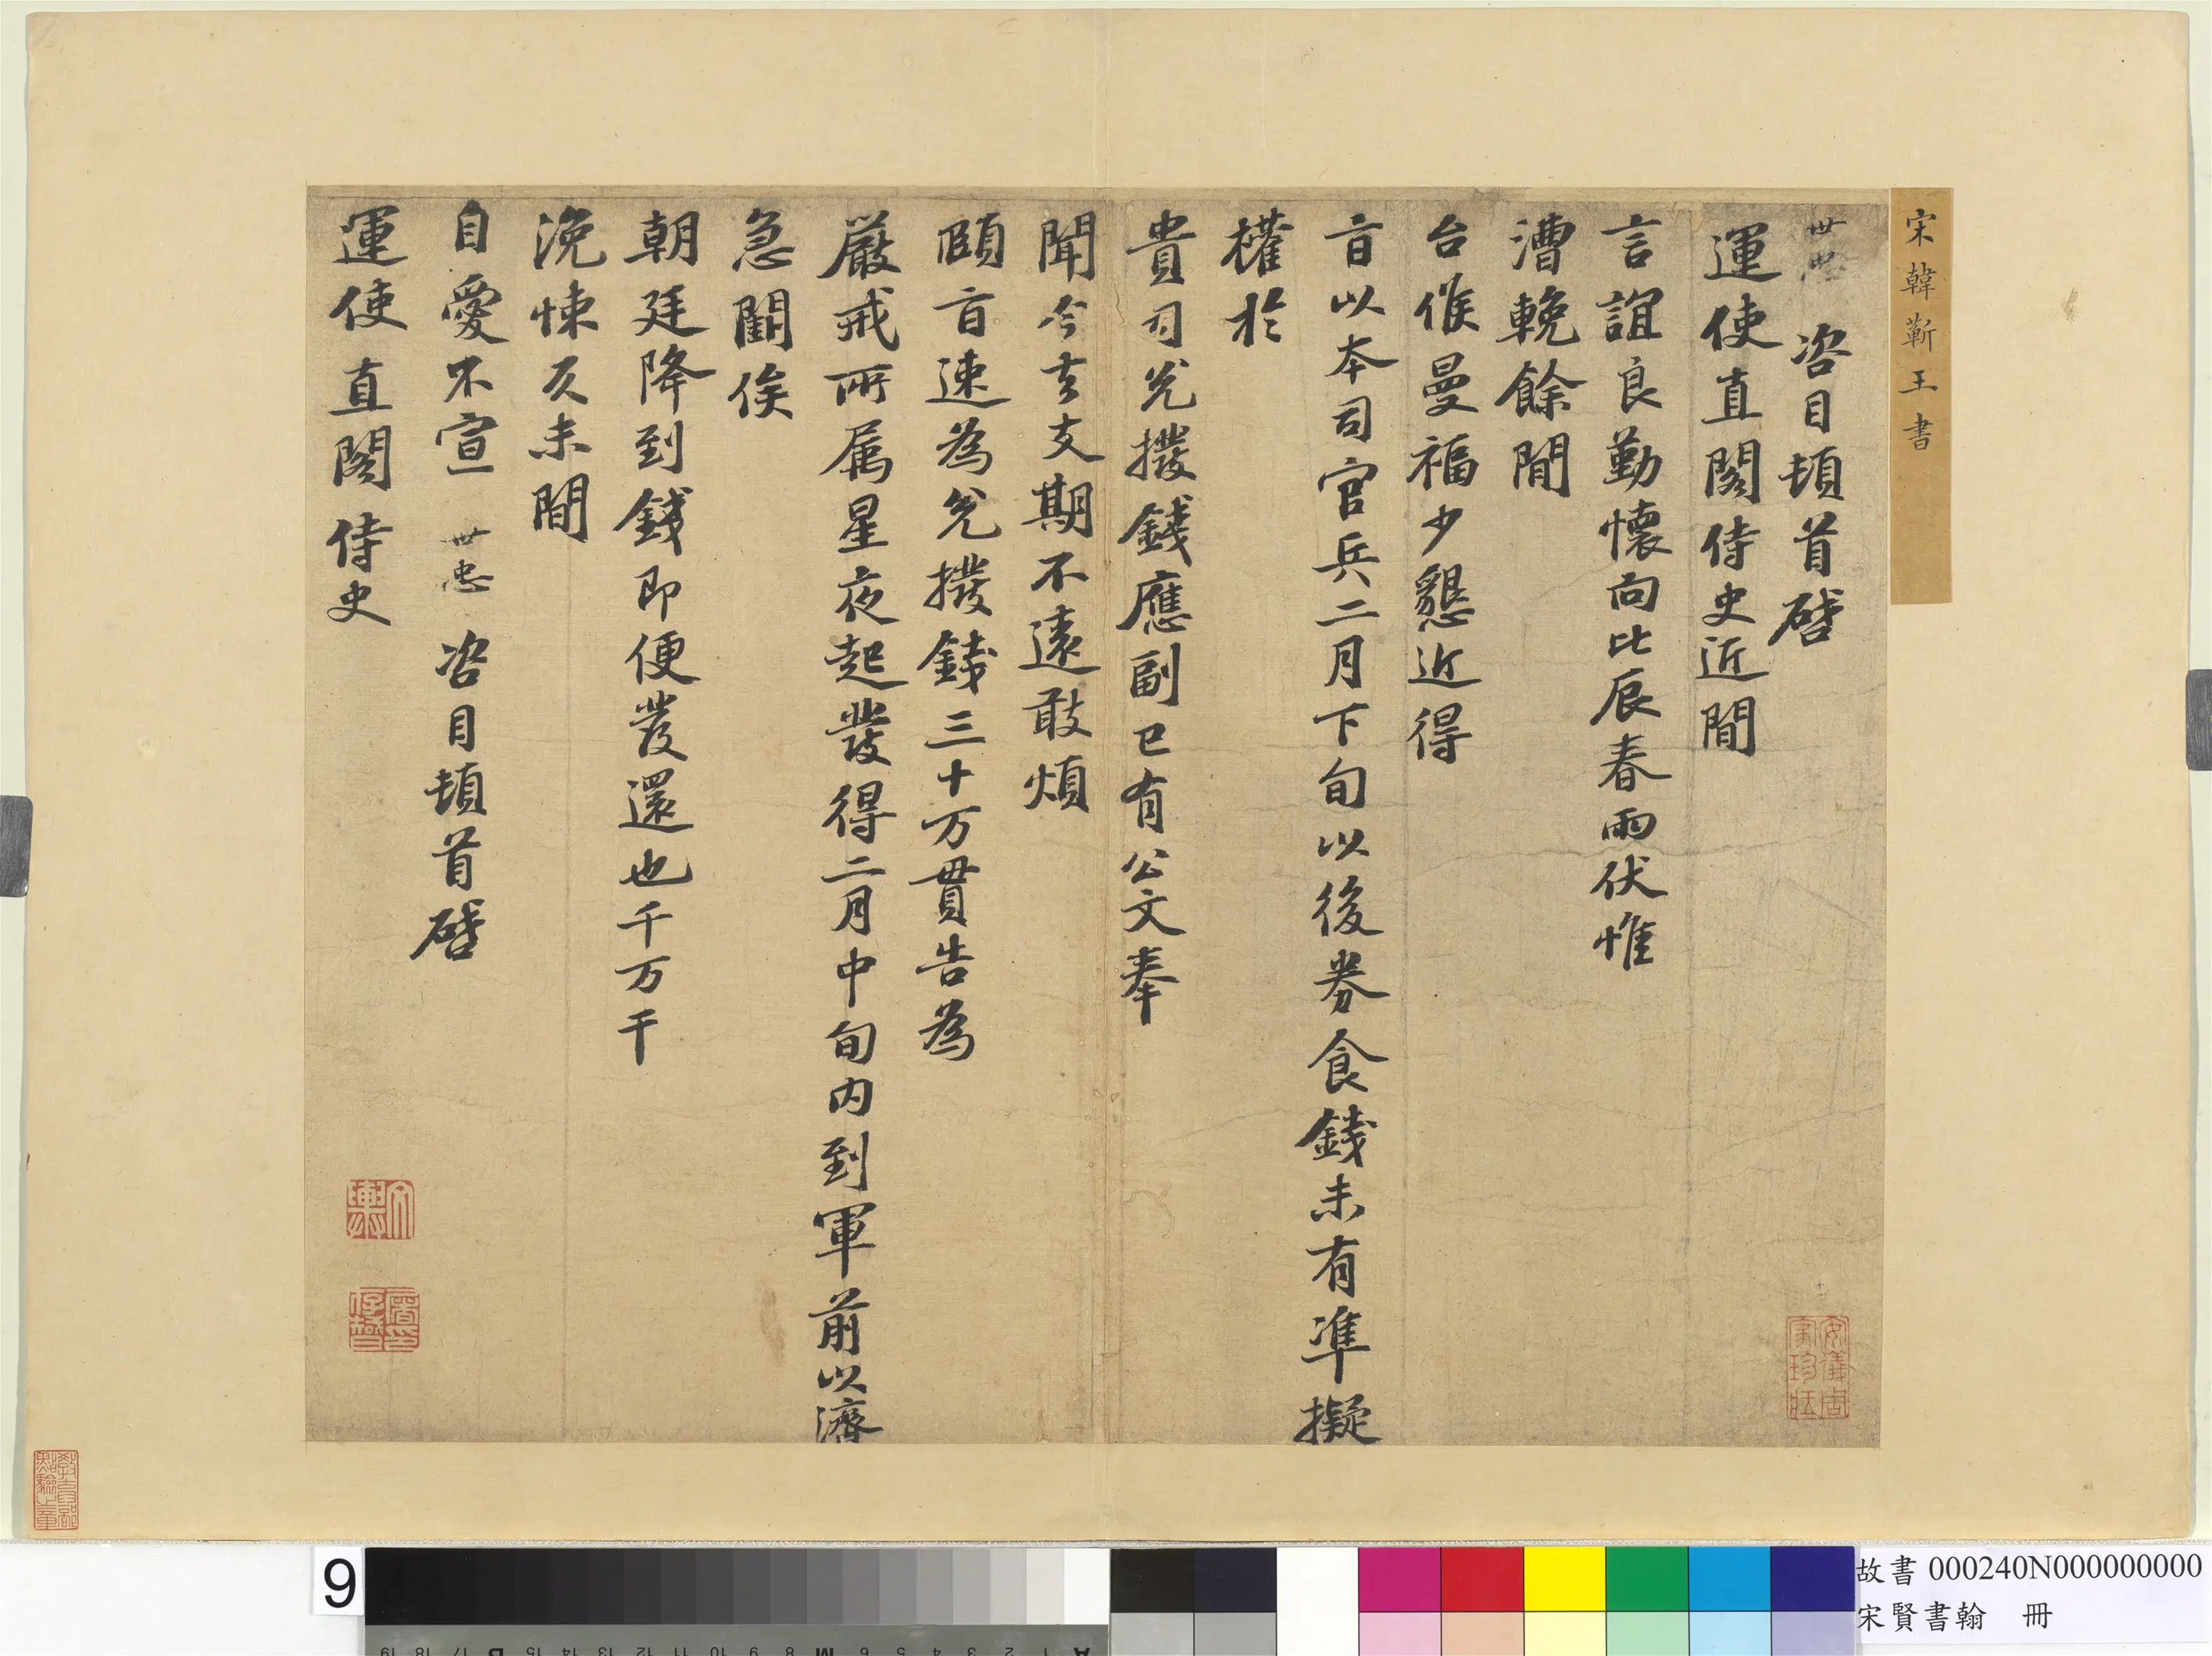 宋韓蘄王書
世忠 咨目頓首啓
運使直閣侍史近閒
言誼良勤懷向比辰春雨伏惟
漕輓餘閒
台候曼福少懇近得
旨以本司官兵二月下旬以後券食錢未有準擬
權於
貴司兌撥錢應副已有公文奉
聞今去支期不遠敢煩
頤旨速為兌撥錢三十万貫告為
嚴戒所属星夜起發得二月中旬内到軍前以濟
急闕俟
朝廷降到錢即便發還也千万千
浼悚久未閒
自愛不宣 世忠 咨目頓首啓
運使直閣侍史
安儀周家珍藏
9
故書 000240N000000000
宋賢書翰 冊